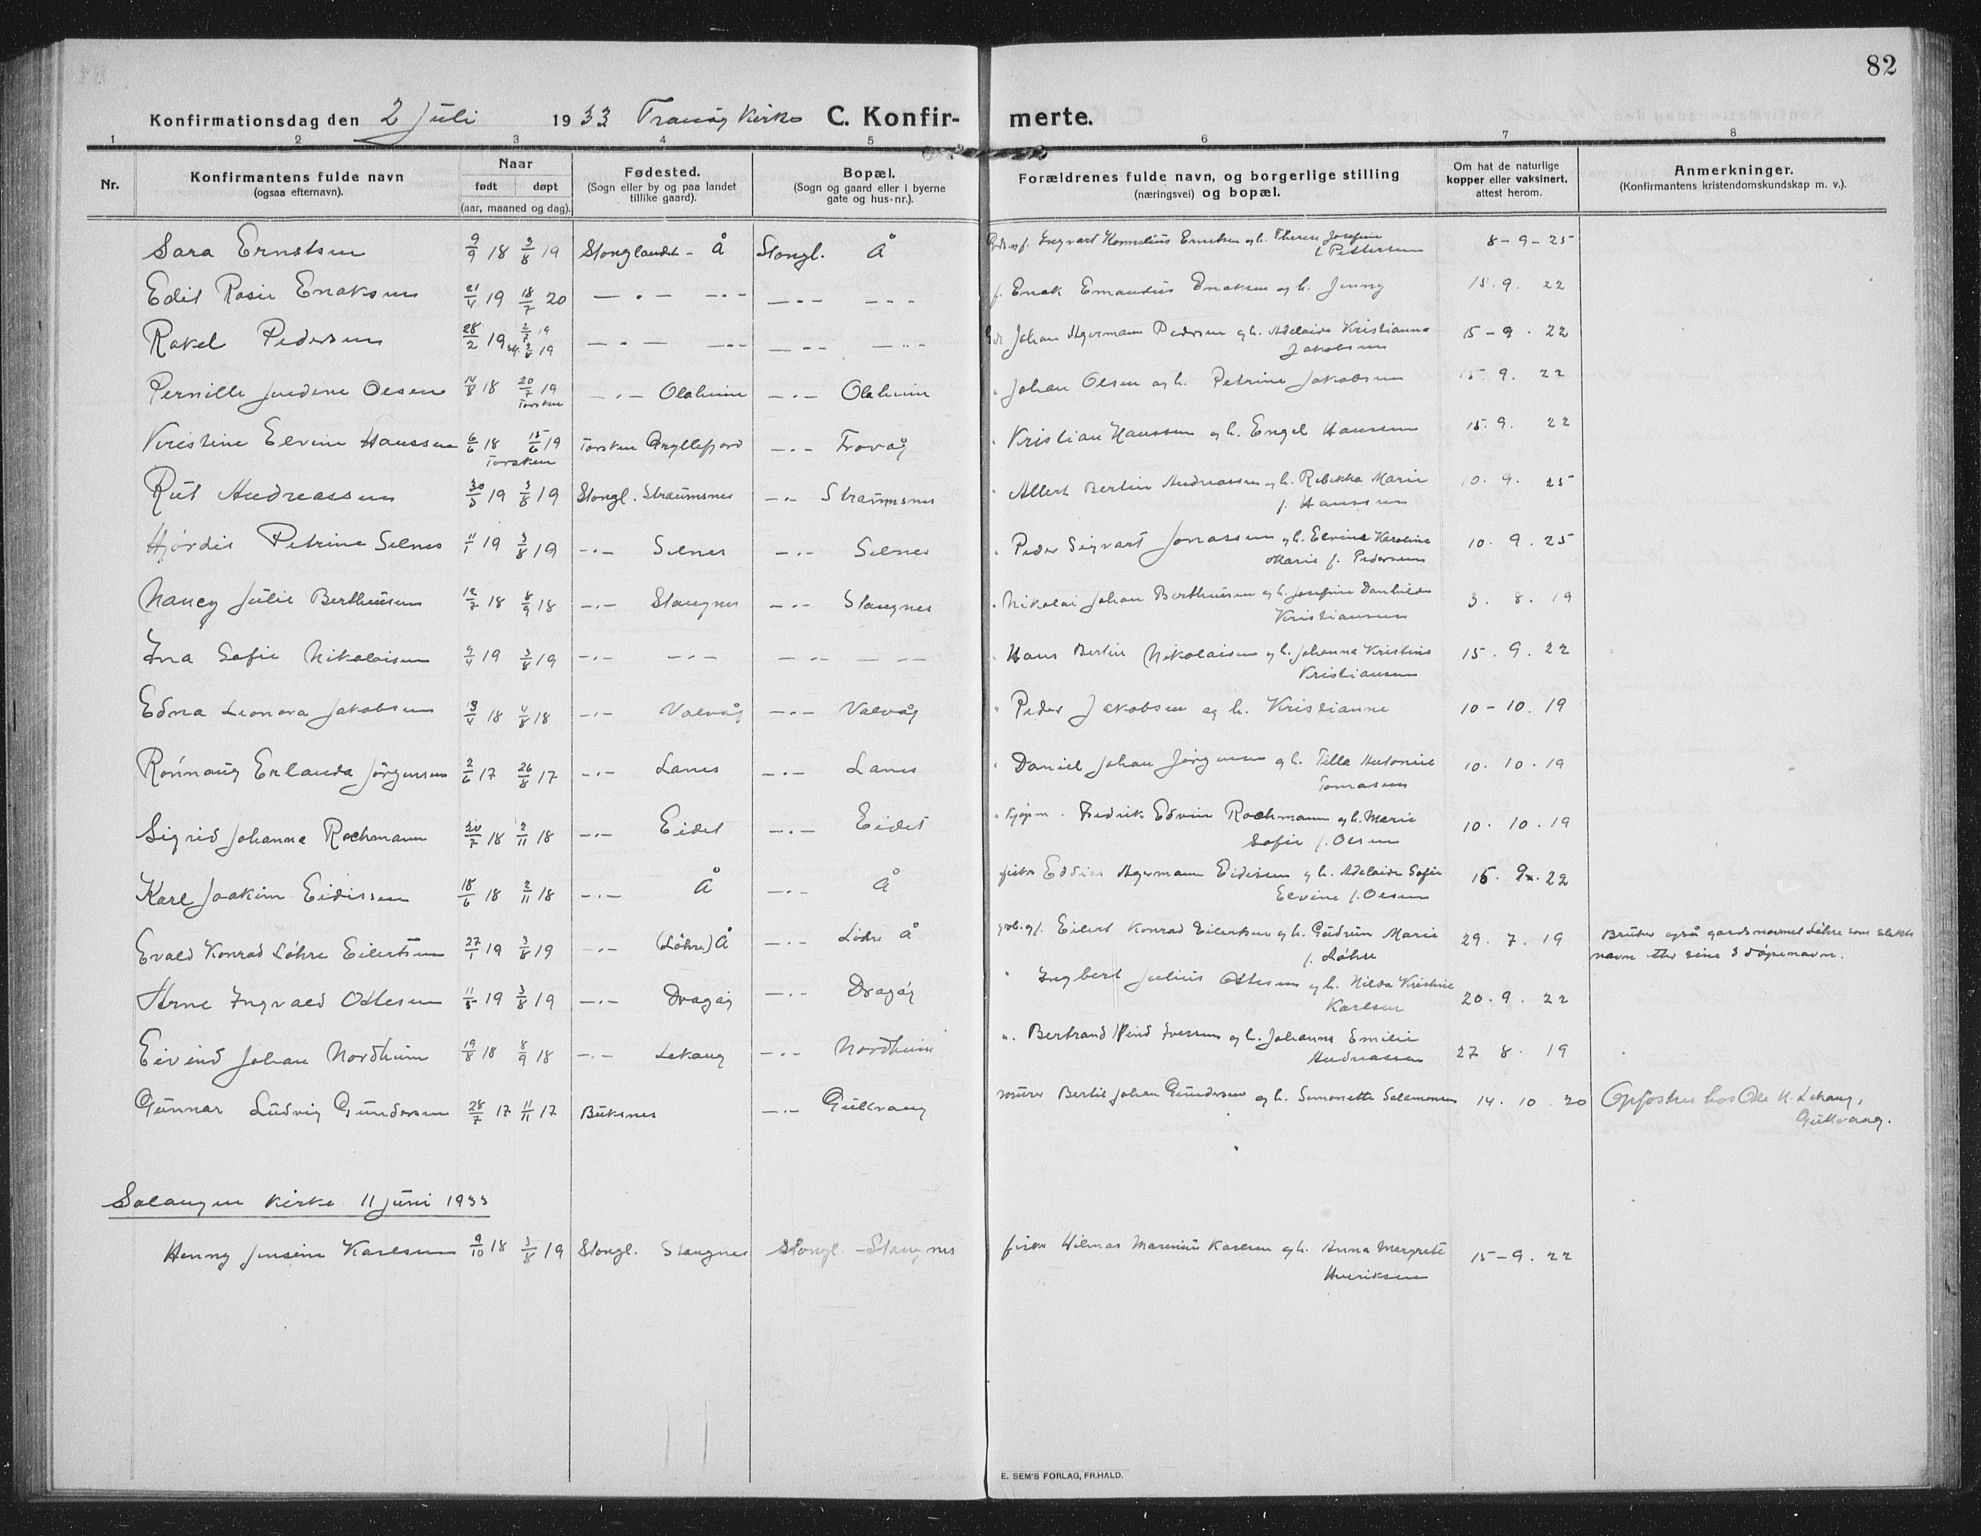 82
Konfirmationsdag den 2 Juli 1933 Tranøy Kirke C. Konfirmerte.
1 2 3 4 5 6 7 8
Nr. Konfirmantens fulde navn (ogsaa efternavn). Naar født døpt (aar, maaned og dag). Fødested. (Sogn eller by og paa landet tillike gaard). Bopæl. (Sogn og gaard eller i byerne gate og hus-nr.). Forældrenes fulde navn, og borgerlige stilling (næringsvei) og bopæl. Om hat de naturlige kopper eller vaksinert, attest herom. Anmerkninger. (Konfirmantens kristendomskundskap m. v.).
Sara Ernstsen 9/9 18 3/8 19 Stonglandet - Å Stongl. Å Ingvart Kornelius Ernstsen og h. Therese Josefine 8-9-25
f. Pettersen
Edit Rosie Enoksen 21/4 19 18/7 20 — . — — . . — — . . — — . . — f. Enok Emandius Enoksen og h. Jenny 15. 9. 22
Rakel Pedersen 28/2 19 2/7 19 3/8 19 — . — — . . — — . . — — . . — Johan Hgermann Pedersen og h. Adelaide Kristianna 15-9. 22
Jakobsen
Pernille Jendine Olsen 14/8 18 20/7 19 — . — Olaheim — . — Olaheim Johan Olsen og h. Petrine Jakobsen 15. 9. 22
Torsken
Kristine Elvine Hanssen 6/6 18 15/6 19 Torsken Gryllefjord — . — Frovåg Kristian Hanssen og h. Engel Hansen 15. 9. 22
Torsken
Rut Andreassen 30/5 19 3/8 19 Stongl. Straumsnes — . — Straumsnes Albert Bertin Andreassen og h. Rebekka Marie 10. 9. 25
f. Hanssen
Hjørdis Petrine Selnes 11/1 19 3/8 19 — . — Selnes — . — Selnes Peder Sigvart Jonassen og h. Elvine Karoline 10. 9. 25
Marie f. Pedersen
Nancy Julie Berthinsen 12/7 18 8/9 18 — . — Stangnes — . — Stangnes Nikolai Johan Berthinsen og h. Josefine Danhilda 3. 8. 19
Kristiansen
Ina Sofie Nikolaisen 9/4 19 3/8 19 — . — — . — — — — — Hans Bertin Nikolaisen og h. Johanna Kristine 15. 9. 22
Kristiansen
Edna Leonora Jakobsen 13/4 18 4/8 18 — . — Valvåg — . — Valvåg Peder Jakobsen og h. Kristianne 10-10. 19
Rønnaug Erlanda Jørgensen 2/6 17 26/8 17 — . — Lanes — . — Lanes Daniel Johan Jørgensen og h. Tilla Antonie 10. 10. 19
Tomasen
Sigrid Johanna Rochmann 20/7 18 2/11 18 — . — Eidet — . — Eidet Kjøpm. Fredrik Edvin Rochmann og h. Marie 10. 10. 19
Sofie f. Olsen
Karl Joakim Eidissen 18/6 18 2/11 18 — . — Å — . — Å fisker Eddies Hgermann Eidissen og h. Adelaide Sofie 15. 9. 22
Elvine f. Olsen
Evald Konrad Løhre Eilertsen 27/1 19 3/8 19 — . — (Løhre) Å — . — Løhre Å Eilert Konrad Eilertsen og h. Gudrun Marie 29. 7. 19 Bruker også gardsnavnet Løhre som slekts
f. Løhre navn etter sine 3 døpenavn.
Arne Ingvald Ottesen 11/5 19 3/8 19 — . — Dragøy — . — Dragøy Ingbert Julius Ottesen og h. Hilda Kristine 20. 9. 22
Karlsen
Eivind Johan Nordheim 19/8 18 8/9 18 — . — Lekang — . — Nordheim Bertrand Wind Iversen og h. Johanna Emilie 27 8. 19
Andreassen
Gunnar Ludvig Gundersen 28/7 17 11/11 17 Buksnes — . — Gullvang murer Bertil Johan Gundersen og h. Simonette Salamonsen 14. 10. 20 Opfostres hos Ole N. Lekang,
Gullvaag.
Salangen Kirke 11 juni 1933
Henny Jensine Karlsen 9/10 18 3/8 19 Stongl. Stangnes Stongl. - Stangnes fisker Hilmar Marinius Karlsen og h. Anna Margrete 15-9. 22
Henriksen
E. SEM'S FORLAG, FR.HALD.